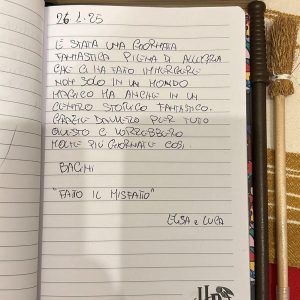 26.1.25
È STATA UNA GIORNATA
FANTASTICA PIENA DI ALLEGRIA
CHE CI HA FATO IMMERGERE
NON SOLO IN UN MONDO
MAGICO MA ANCHE IN UN
CENTRO STORICO FANTASTICO.
GRAZIE DAVVERO PER TUTTO
QUESTO E VORREBBERO
MOLTE PIÙ GIORNATE COSÌ.
BACINI
"FATTO IL MISFATTO"
ELISA e LUCA